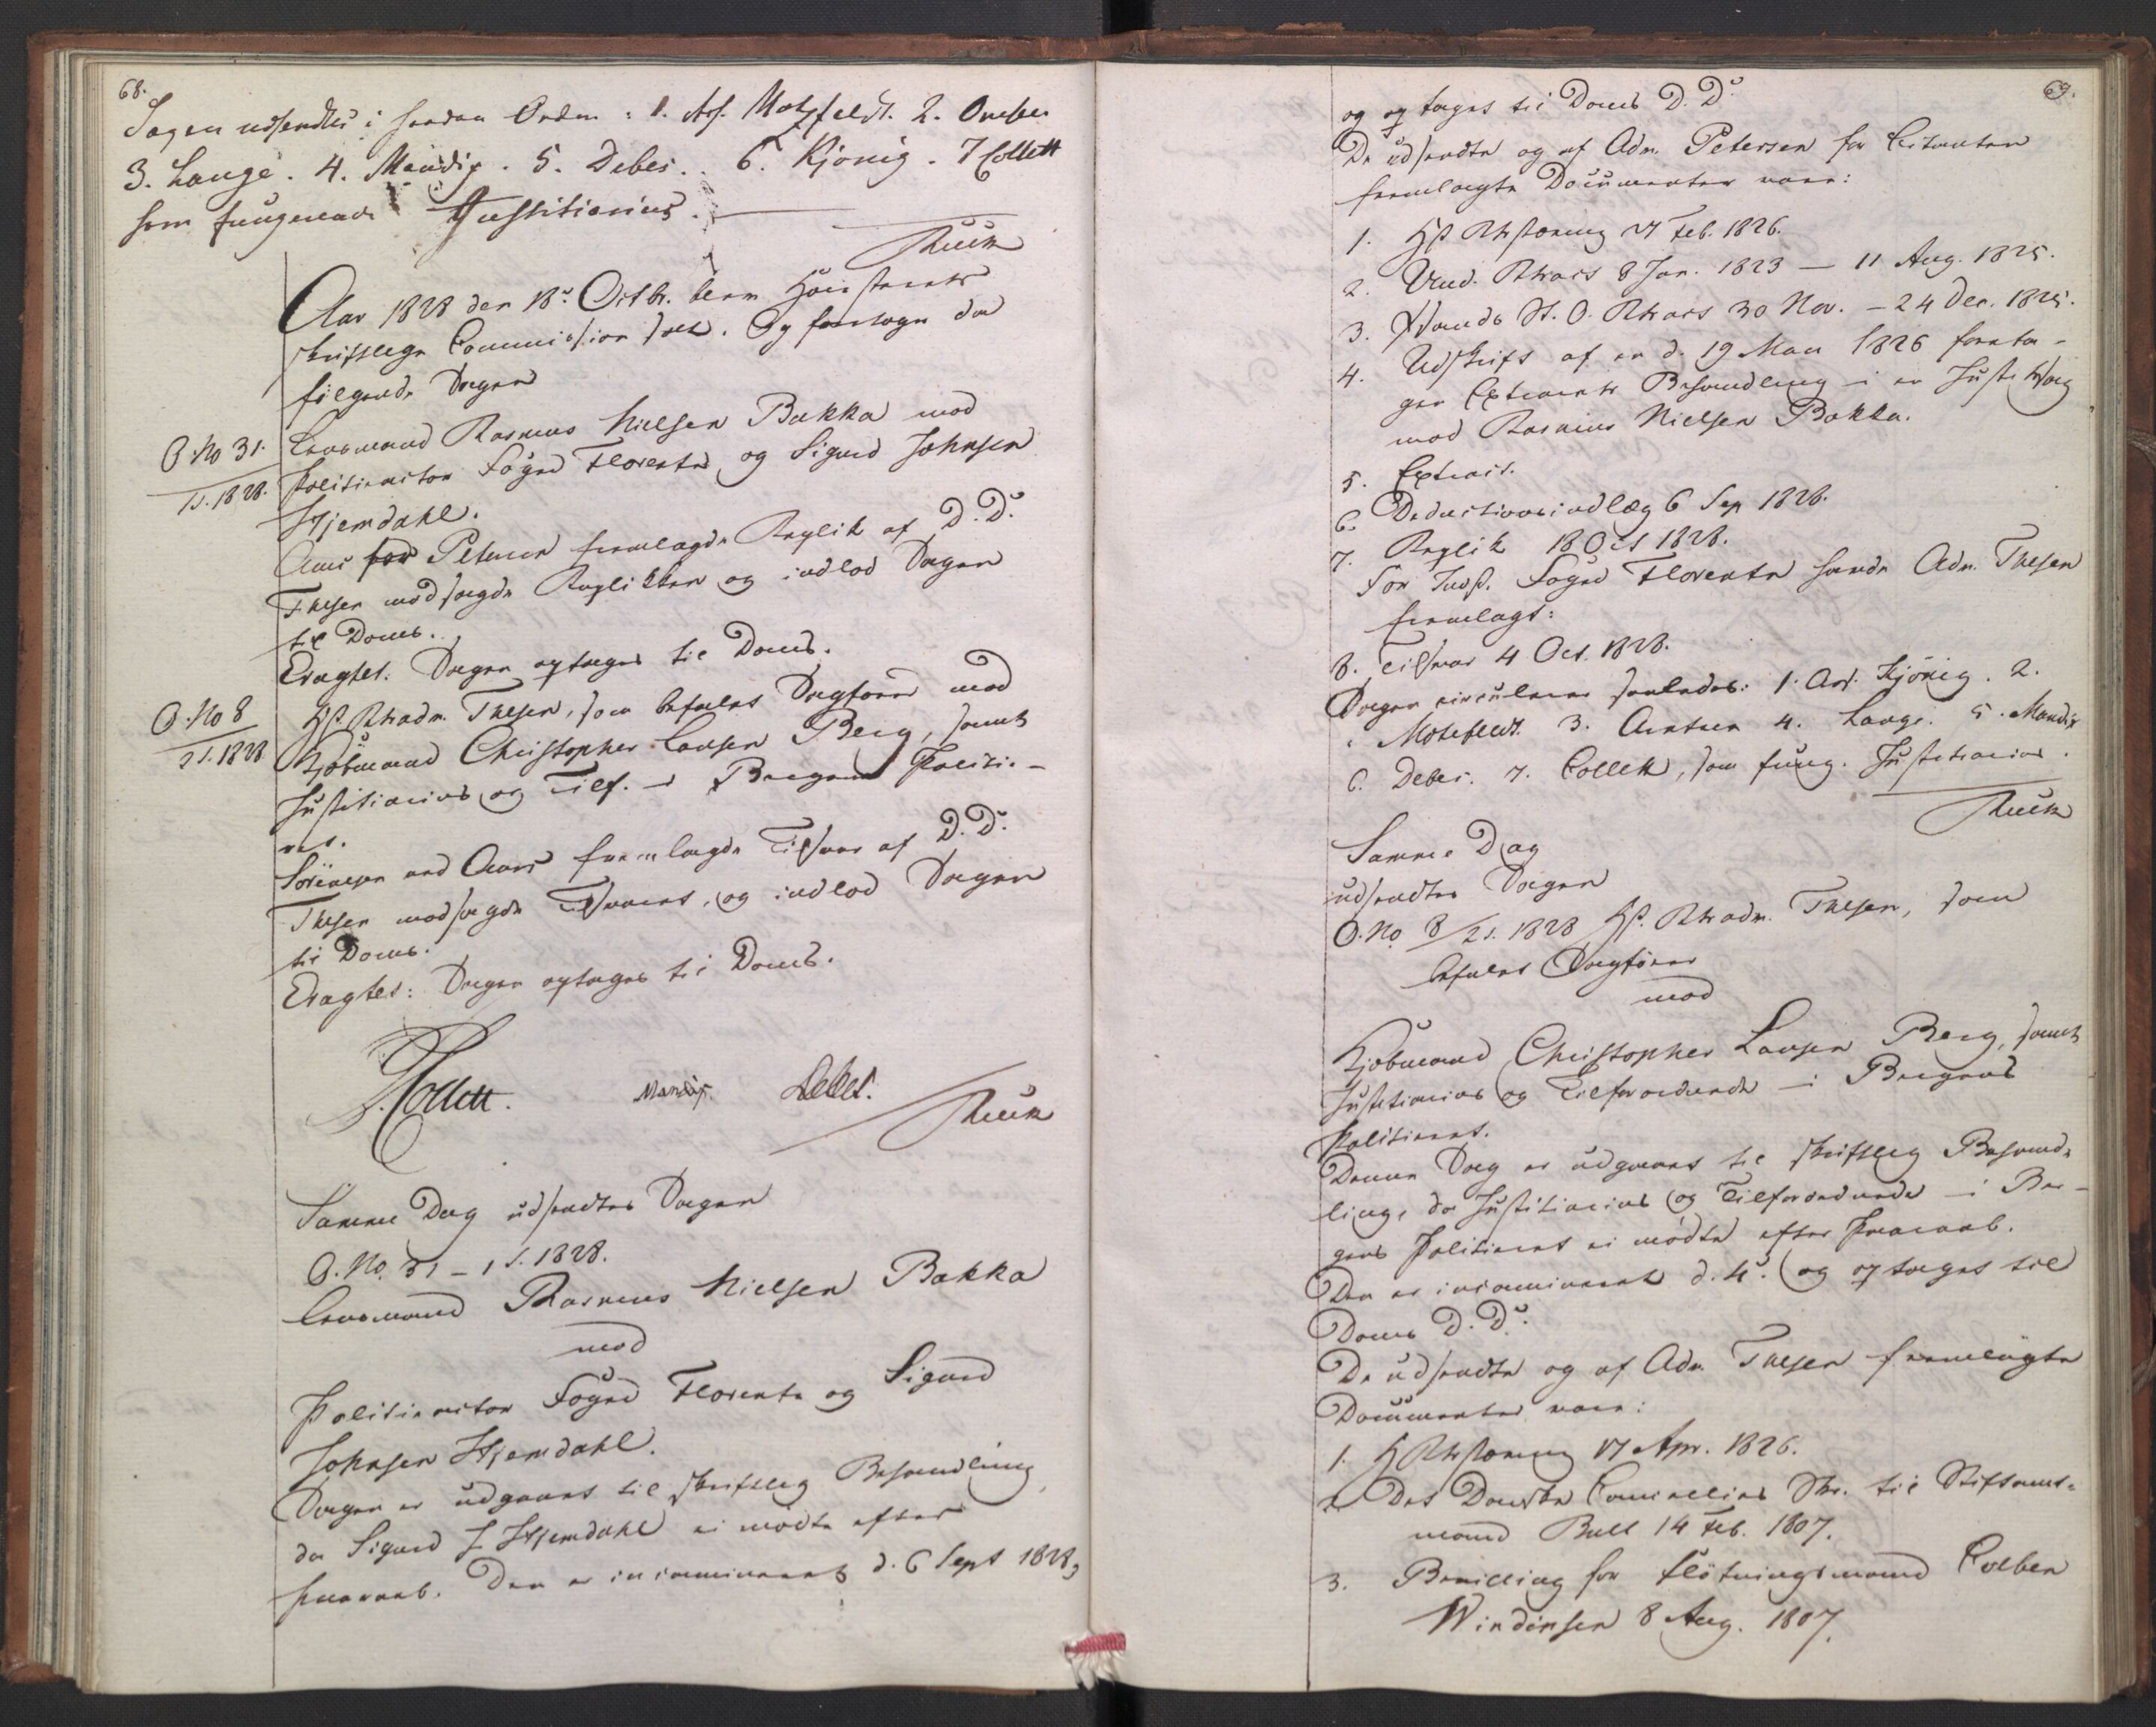 68.
Sagen udsendtes i saadan Orden: 1. Ass. Motzfeldt. 2.
3. Lange. 4. Mandix. 5. Debes. 6. Kjönig. 7 Collett
som fungerende Justitiarius.
Aar 1828 den 18de Octbr. blev Höiesterets
skriftlige Commission sat. Og foretoges da
følgende Sager
O. No 31.
1 S. 1828.
Lensmand Rasmus Nielsen Bakka mod
Politiactor Foged Florentz og Sigurd Johnsen
Hjemdahl.
for Petersen fremlagde Replik af D. D.
Thesen modsagde Replikken og indlod Sagen
til Doms.
Eragtet: Sagen optages til Doms.
O. No 8
2 S. 1828
HsRAdv. Thesen, som befalet Sagfører mod
Kjöbmand Christopher Lausen Berg, samt
Justitiarius og Tilf. i Bergens Politie-
ret.
Sörensen ved fremlagde Tilsvar af D. D.
Thesen modsagde Tilsvaret, og indlod Sagen
til Doms.
Eragtet: Sagen optages til Doms.
Collett. Mandix. Debes.
Samme Dag udsendtes Sagen
O. No. 31 – 1 S. 1828.
Lensmand Rasmus Nielsen Bakka
mod
Politieactor Foged Florentz og Sigurd
Johnsen Hjemdahl.
Sagen er udgaaet til skriftlig Behandling,
da Sigurd J Hjemdahl ei mødte efter
Paaraab. Den er incamineret d. 6 Sept 1828,
69.
og optages til Doms D. D.
De udsendte og af Adv. Petersen for Citanten
fremlagte Documenter vare:
1. Feb. 1826.
2. 8 Jan. 1823 — 11 Aug. 1825.
3. 30 Nov. – 24 Dec. 1825.
4. Udskrift af en d. 19 Mai 1826 foreta-
gen Extrarets Behandling i en Justitssag
mod Rasmus Nielsen Bakka.
5. Extract.
6. Deductionsindlæg 6 Sep 1828.
7. Replik 18 Oct 1828.
For Foged Florentz havde Adv. Thesen
fremlagt:
8. Tilsvar 4 Oct. 1828.
Sagen circulerer saaledes: 1. Ass. Kjönig. 2.
Motzfeldt. 3. 4. Lange. 5. Mandix
6. Debes. 7. Collett, som fung. Justitiarius.
Samme Dag
udsendtes Sagen
O. No 8/2 S. 1828 HsRAdv. Thesen, som
befalet Sagfører
mod
Kjöbmand Christopher Lausen Berg, samt
Justitiarius og Tilforordnede i Bergens
Politieret.
Denne Sag er udgaaet til skriftlig Behand-
ling, da Justitiarius og Tilforordnede i Ber-
gens Politieret ei mødte efter Paaraab.
Den er incamineret d. 4de og optages til
Doms D. D.
De udsendte og af Adv. Thesen fremlagte
Documenter vare:
1. 17 Apr. 1826.
2. Det Danske Cancellies Skr. til Stiftamt-
mand Bull 14 Feb. 1807.
3. Bevilling for Flötningsmand
8 Aug. 1807.